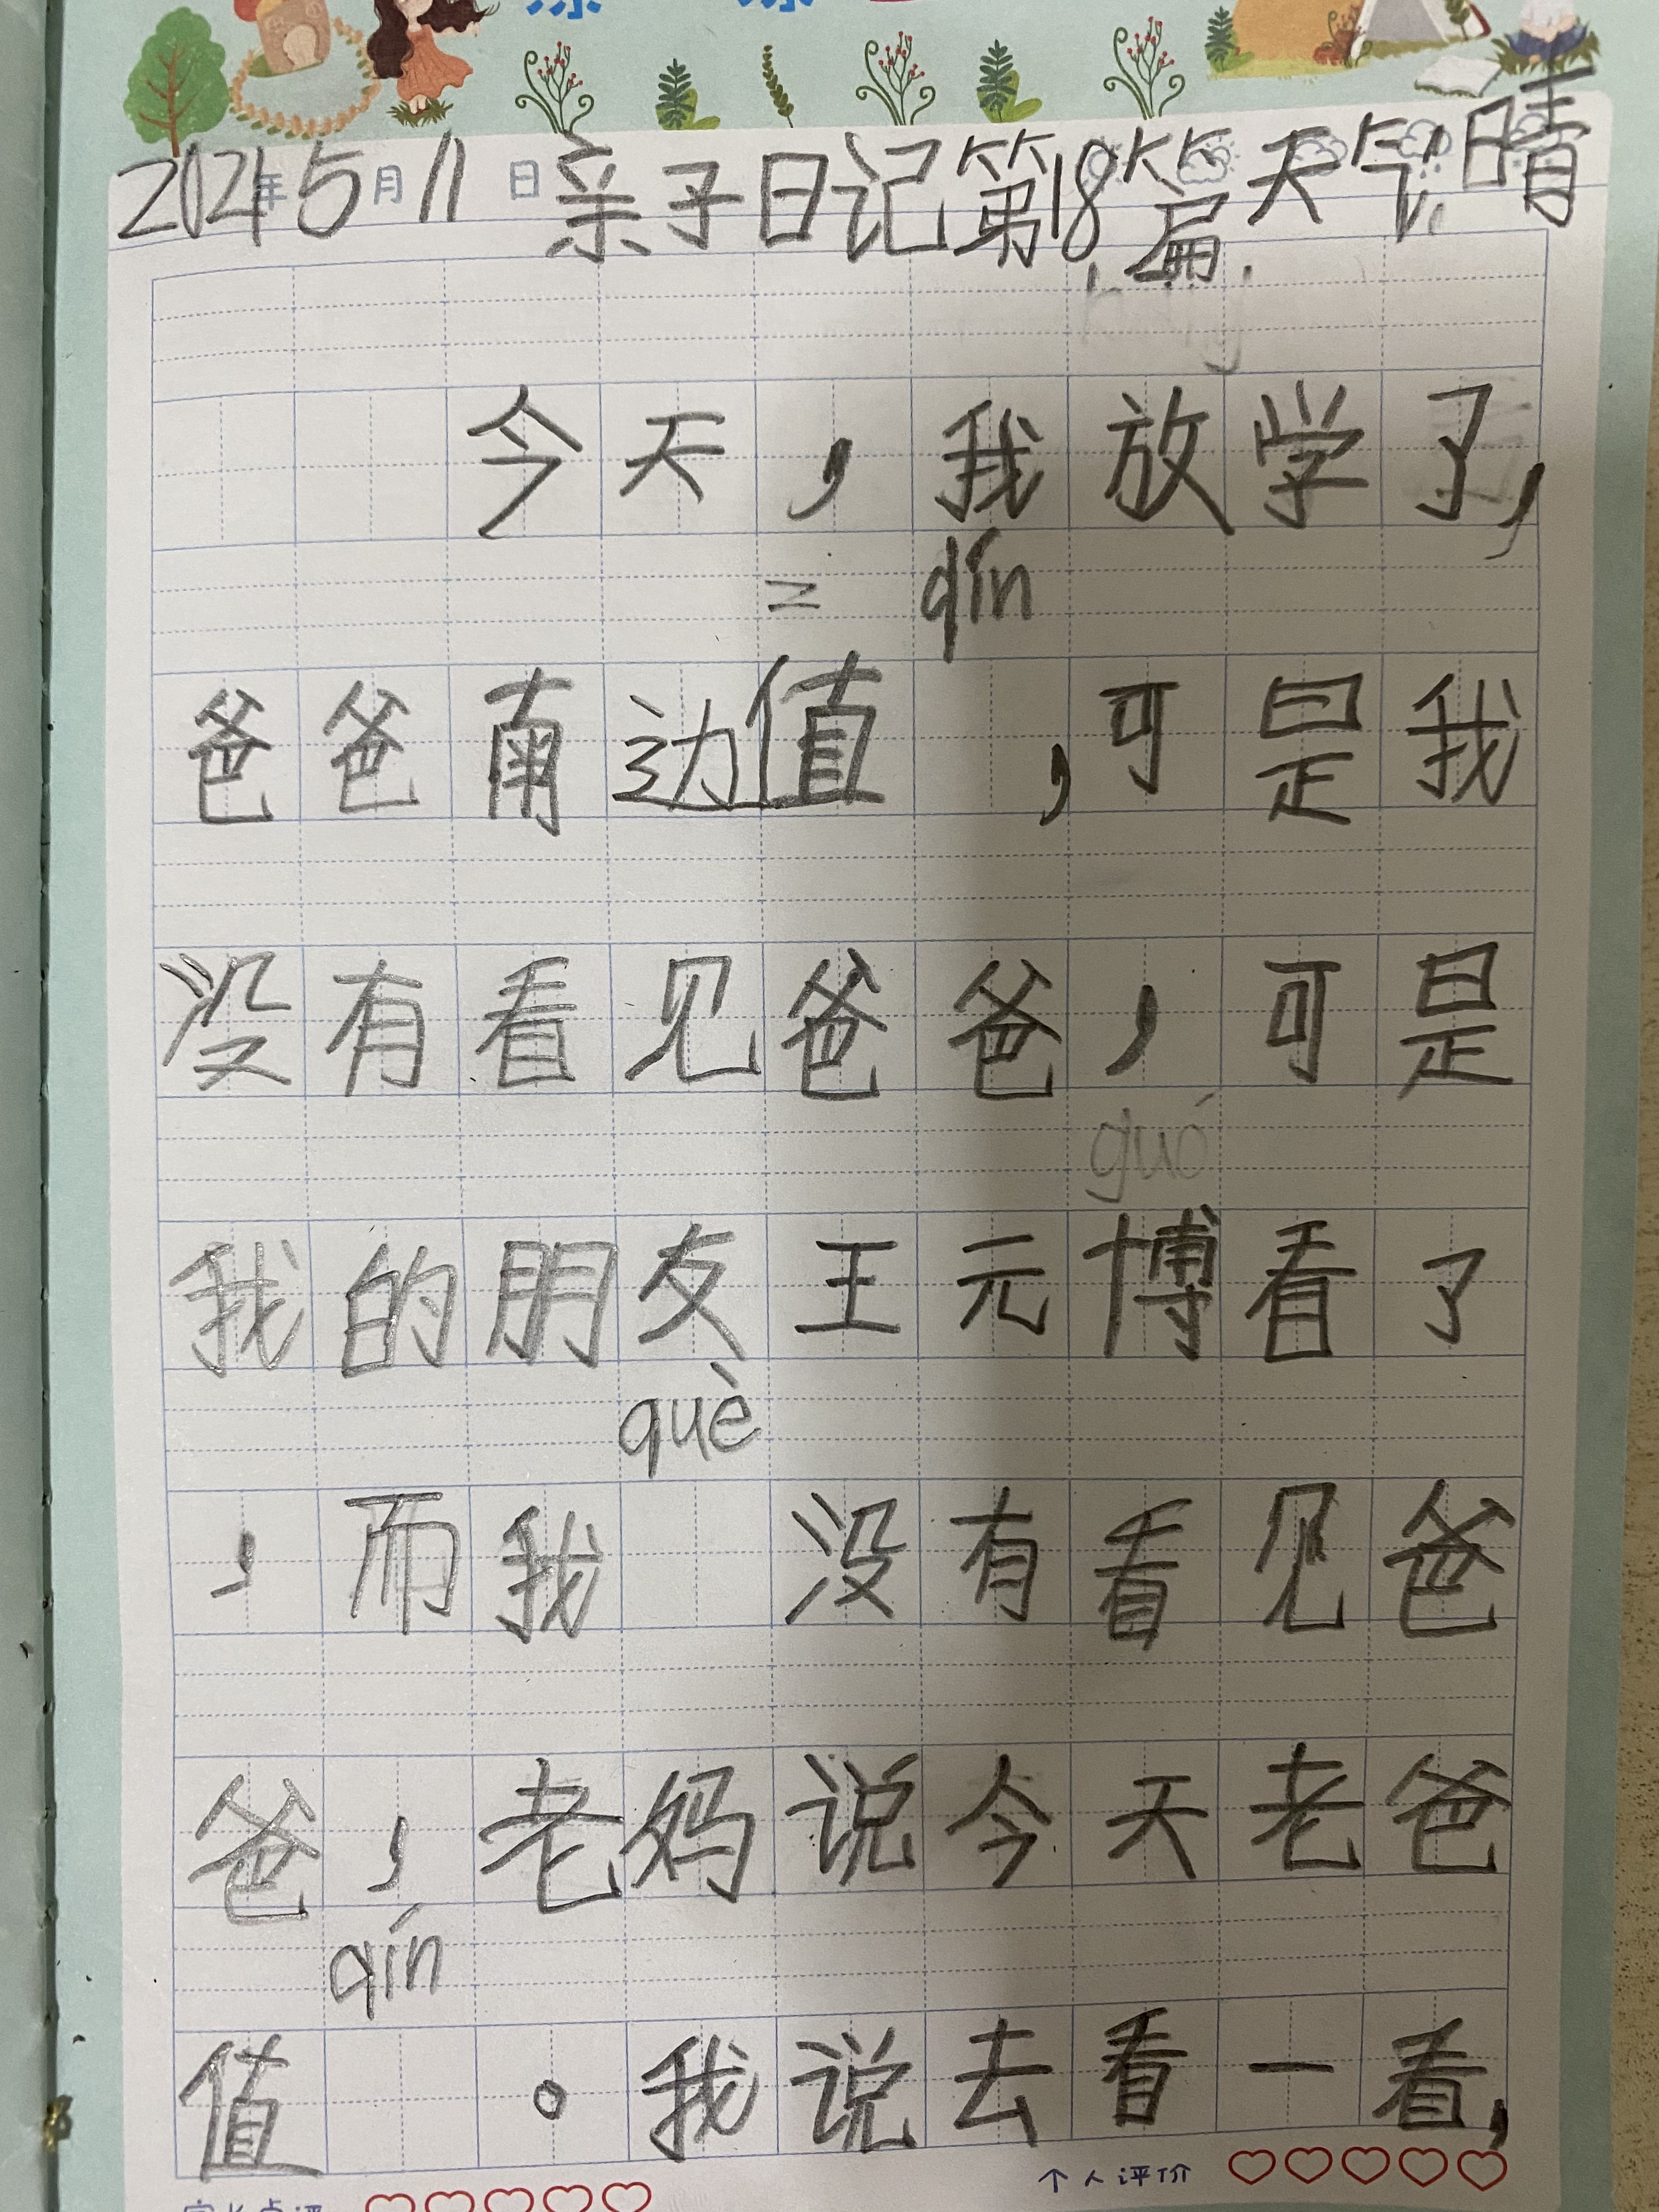 2024年5月11日 亲子日记第18篇. 天气:晴
今天，我放学了，
= qín
爸爸南边值 ，可是我
没有看见爸爸，可是
guó
我的朋友王元博看了
què
，而我 没有看见爸
爸，老妈说今天老爸
qín
值 。我说去看一看，
个人评价